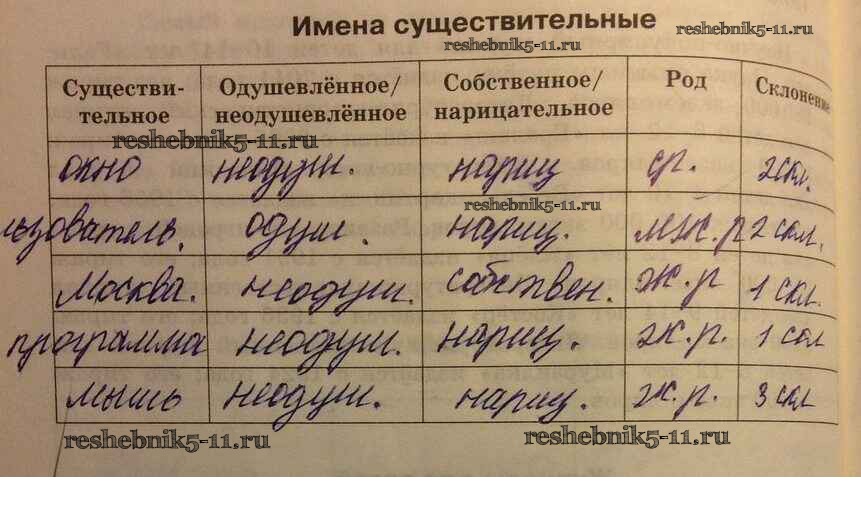 Имена существительные
reshebnik5-11.ru
reshebnik5-11.ru
Существи-
тельное
Одушевлённое/
неодушевлённое
Собственное/
нарицательное
Род
Склонение
reshebnik5-11.ru
окно неодуш. нариц ср. 2 скл.
reshebnik5-11.ru
ьзователь. одуш. нариц. мж. р 2 скл.
Москва. неодуш. собствен. ж. р 1 скл.
программа неодуш. нариц. ж. р. 1 скл
мышь неодуш. нариц. ж. р. 3 скл
reshebnik5-11.ru
reshebnik5-11.ru